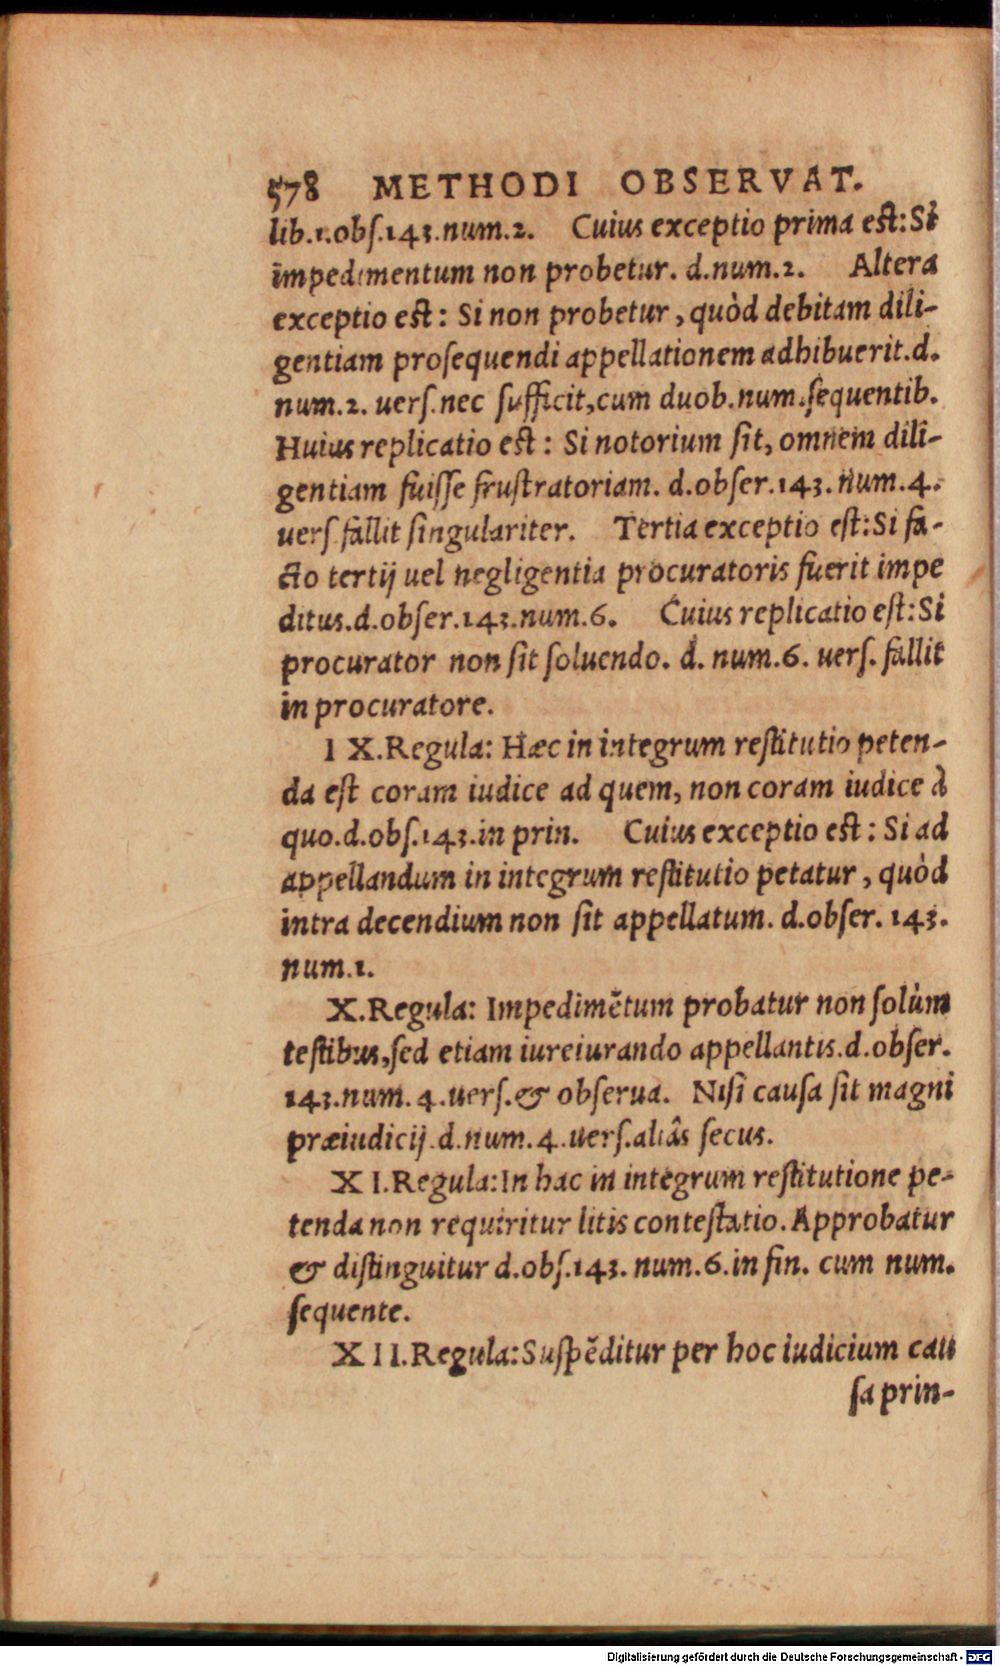 578 METHODI OBSERVAT.
lib.1.obſ.143.num.2. Cuius exceptio prima eſt:Si
impedimentum non probetur. d.num.2. Altera
exceptio eſt: Si non probetur, quòd debitam dili-
gentiam proſequendi appellationem adhibuerit.d.
num.2. uerſ.nec ſufficit,cum duob.num.ſequentib.
Huius replicatio eſt: Si notorium ſit, omnem dili-
gentiam fuiſſe fruſtratoriam. d.obſer.143.num.4.
uerſ.fallit ſingulariter. Tertia exceptio eſt:Si fa-
cto tertij uel negligentia procuratoris fuerit impe
ditus.d.obſer.143.num.6. Cuius replicatio eſt:Si
procurator non ſit ſoluendo. d. num.6. uerſ. fallit
in procuratore.
IX.Regula: Hæc in integrum reſtitutio peten-
da eſt coram iudice ad quem, non coram iudice à
quo.d.obſ.143.in prin. Cuius exceptio eſt: Si ad
appellandum in integrum reſtitutio petatur, quòd
intra decendium non ſit appellatum. d.obſer. 143.
num.1.
X.Regula: Impedimētum probatur non ſolùm
teſtibus,ſed etiam iureiurando appellantis.d.obſer.
143.num. 4.uerſ.& obſerua. Niſi cauſa ſit magni
præiudicij.d.num.4.uerſ.aliâs ſecus.
XI.Regula:In hac in integrum reſtitutione pe-
tenda non requiritur litis conteſtatio. Approbatur
& diſtinguitur d.obſ.143. num.6.in fin. cum num.
ſequente.
XII.Regula:Suſpēditur per hoc iudicium cau
ſa prin-
Digitalisierung gefördert durch die Deutsche Forschungsgemeinschaft - DFG